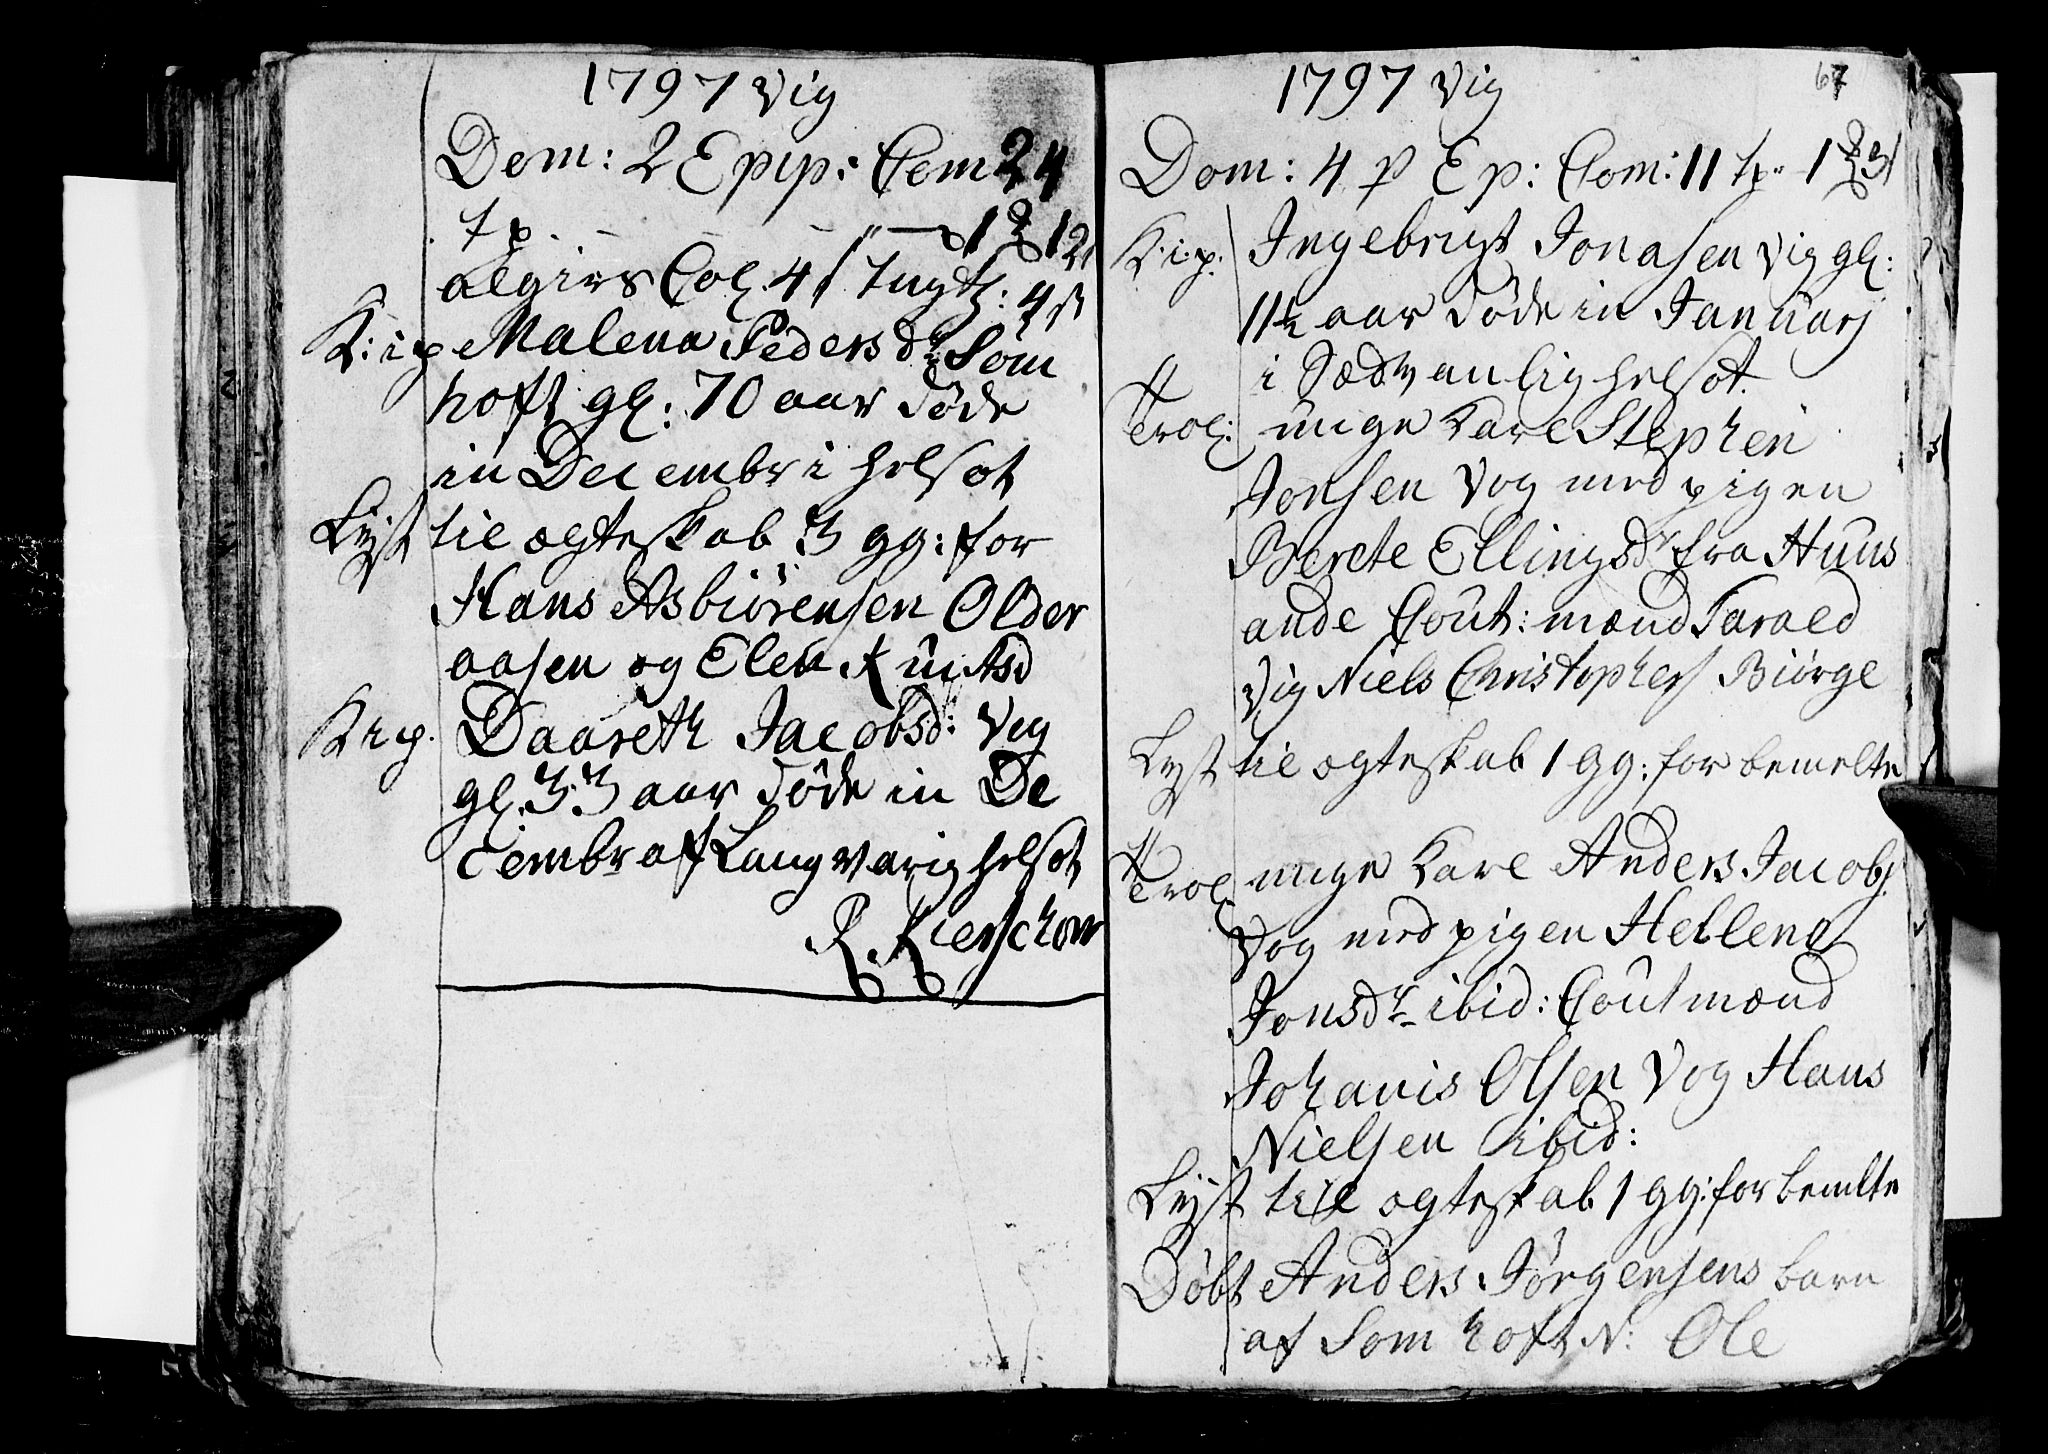 1797 Vig
Dom: 2 Epip: Com 24
tp. 1
algirs Col 4 s Tugth: 4 s
K: i p Malena Peders dr Som
hoft gl: 70 aar døde
in Decembr i helsot
Lyst til ægteskab 3 gg: for
Hans Asbiørensen Older
aasen og Elen Knutsd
K i p. Daareth Jacobsd: Vig
gl. 33 aar døde in De
cembr af Langvarig helsot
R. Kierschow
1797 Vig
67
Dom: 4 p Ep: Com: 11 tp 1
K: i p: Ingebrigt Jonasen Vig gl:
11½ aar døde in Januarj
i Sædvanlig helsot.
Trol: unge Karl Stephen
Jonsen Vog med pigen
Berete Ellingsdr fra Huus
ande Cout: mænd Tarald
Vig Niels Christophers Biørge
Lyst til ægteskab 1 gg: for bemelte
Trol unge Karl Anders Jacobs
Vog med pigen Hellena
Jonsdr ibid: Cout mænd
Johanis Olsen Vog Hans
Nielsen ibid:
Lyst til ægteskab 1 gg: for bemlte
Døbt Anders Jørgensens barn
af Som hoft N: Ole